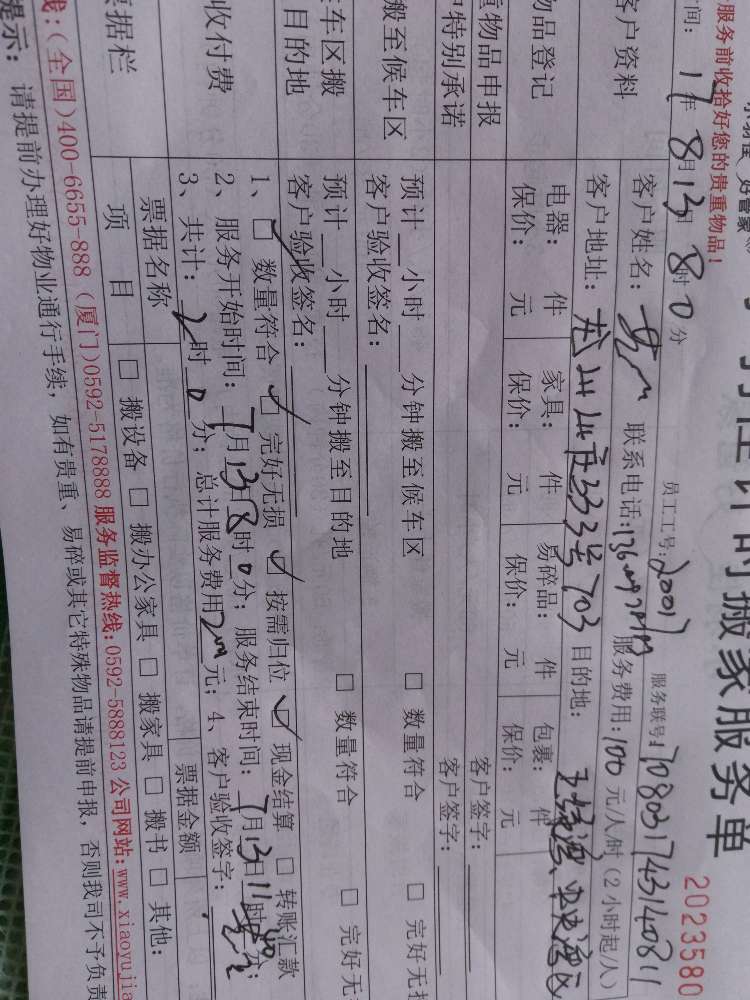 时搬家服务单
2023580
服务前收拾好您的贵重物品!
员工工号: 20017 服务联号: 1708031743140811
时间: 17年8月13日8时0分
客户资料
客户姓名: 联系电话: 服务费用: 100元/人/时(2小时起/人)
客户地址: 333号703 目的地:
物品登记
电器: 件 家具: 件 易碎品: 件 包裹: 件
保价: 元 保价: 元 保价: 元 保价: 元
物品申报 客户签字:
特别承诺 客户签字:
搬至候车区
预计__小时__分钟搬至候车区 □ 数量符合 □ 完好无损
客户验收签名:
车区搬
目的地
预计__小时__分钟搬至目的地 □ 数量符合 □ 完好无
客户验收签名:
收付费
1、□ 数量符合 □ 完好无损 □ 按需归位 □ 现金结算 □ 转账汇款
2、服务开始时间: 月13日8时0分; 服务结束时间: 月13日11时 分;
3、共计: 2时0分; 总计服务费用 元; 4、客户验收签字:
票据栏
票据名称 票据金额
项目 □ 搬设备 □ 搬办公家具 □ 搬家具 □ 搬书 □ 其他:
线:(全国)400-6655-888 (厦门)0592-5178888 服务监督热线:0592-5888123 公司网站:www.xiaoyujia
提示: 请提前办理好物业通行手续,如有贵重、易碎或其它特殊物品请提前申报,否则我司不予负责